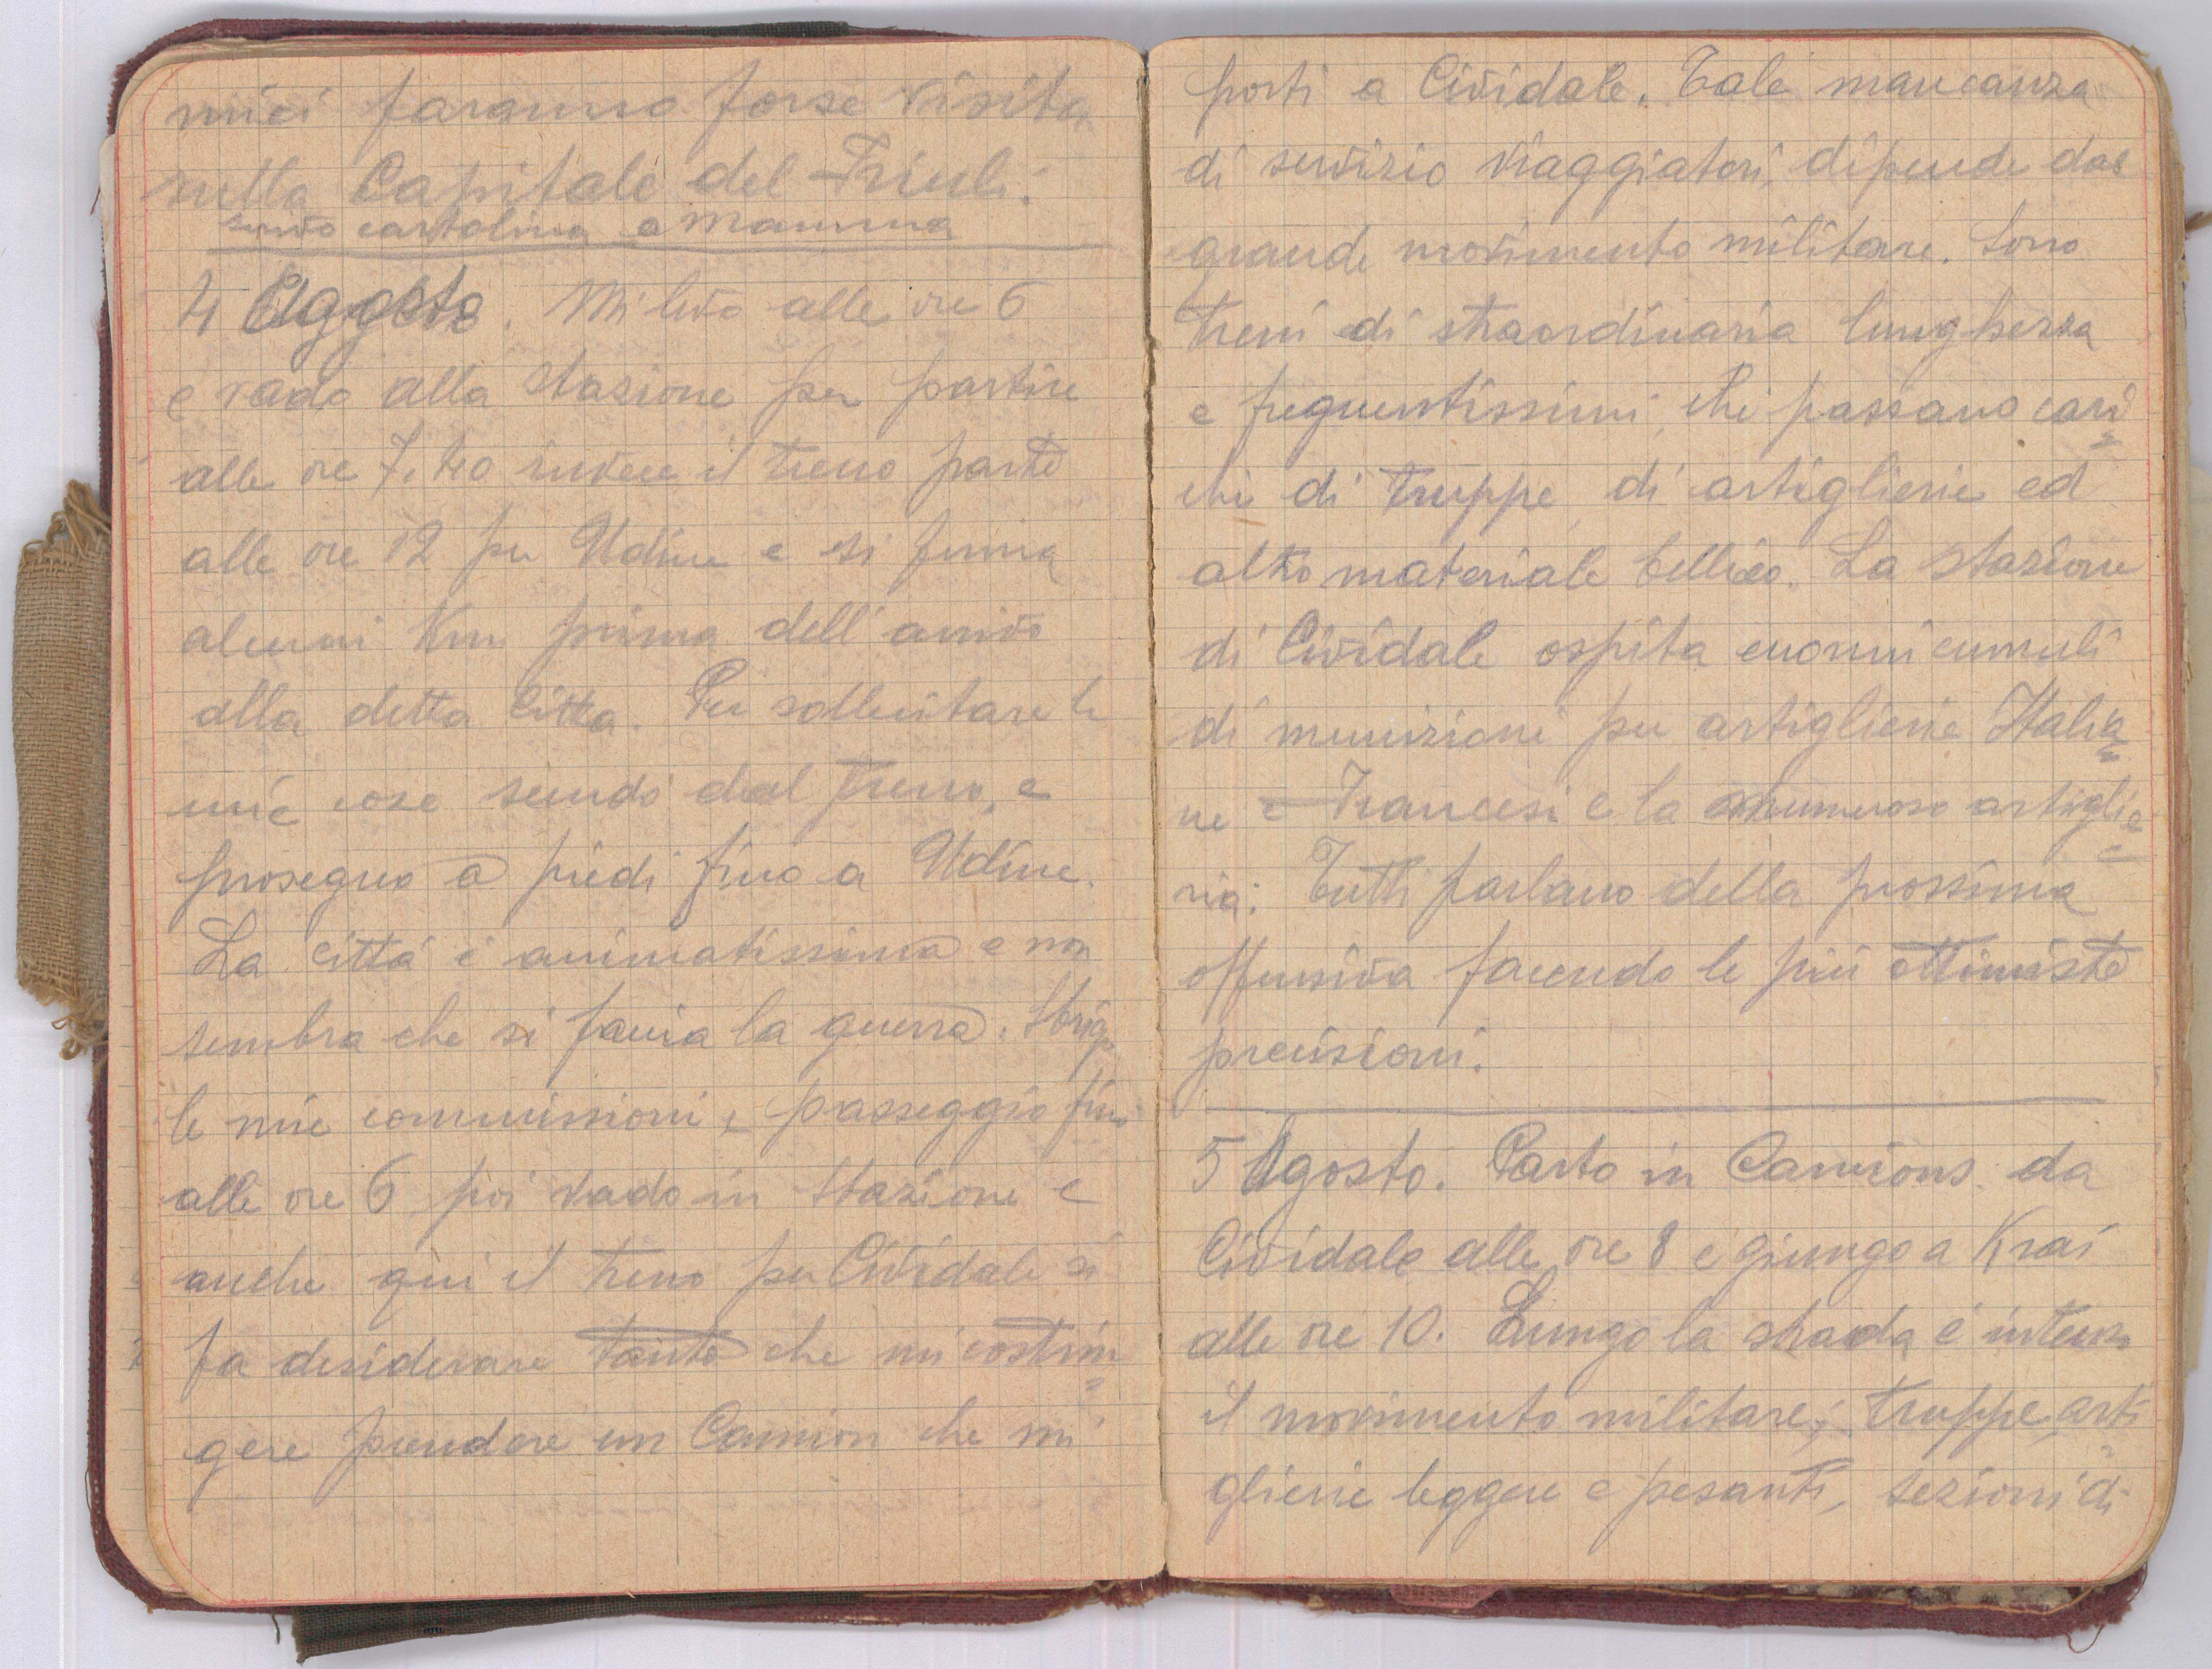 mici faranno forse visita
sulla Capitale del Friuli.
scrivo cartolina a Mamma
4 Agosto. Mi levo alle ore 6
e vado alla stazione per partire
alle ore 7,40 invece il treno parte
alle ore 12 per Udine e si ferma
alcuni Km prima dell'arrivo
alla detta Città. Per sollecitare le
mie cose scendo dal treno, e
proseguo a piedi fino a Udine.
La città è animatissima e non
sembra che si faccia la guerra. Sbrigo
le mie commissioni e passeggio fino
alle ore 6, poi vado in stazione e
anche qui il treno per Cividale si
fa desiderare tanto che mi costrin=
gere prendere un Camion che mi
porti a Cividale. Tale mancanza
di servizio viaggiatori, dipende dal
grande movimento militare. Sono
treni di straordinaria lunghezza
e frequentissimi, che passano cari=
chi di truppe, di artiglierie ed
altro materiale bellico. La stazione
di Cividale ospita enormi cumuli
di munizioni per artiglierie Italia=
ne e Francesi e la numerosa artiglie=
ria. Tutti parlano della prossima
offensiva facendo le più ottimiste
previsioni.
5 Agosto. Parto in Camions da
Cividale alle ore 8 e giungo a Krai
alle ore 10. Lungo la strada è intenso
il movimento militare; truppe, arti=
glierie leggere e pesanti, sezioni di